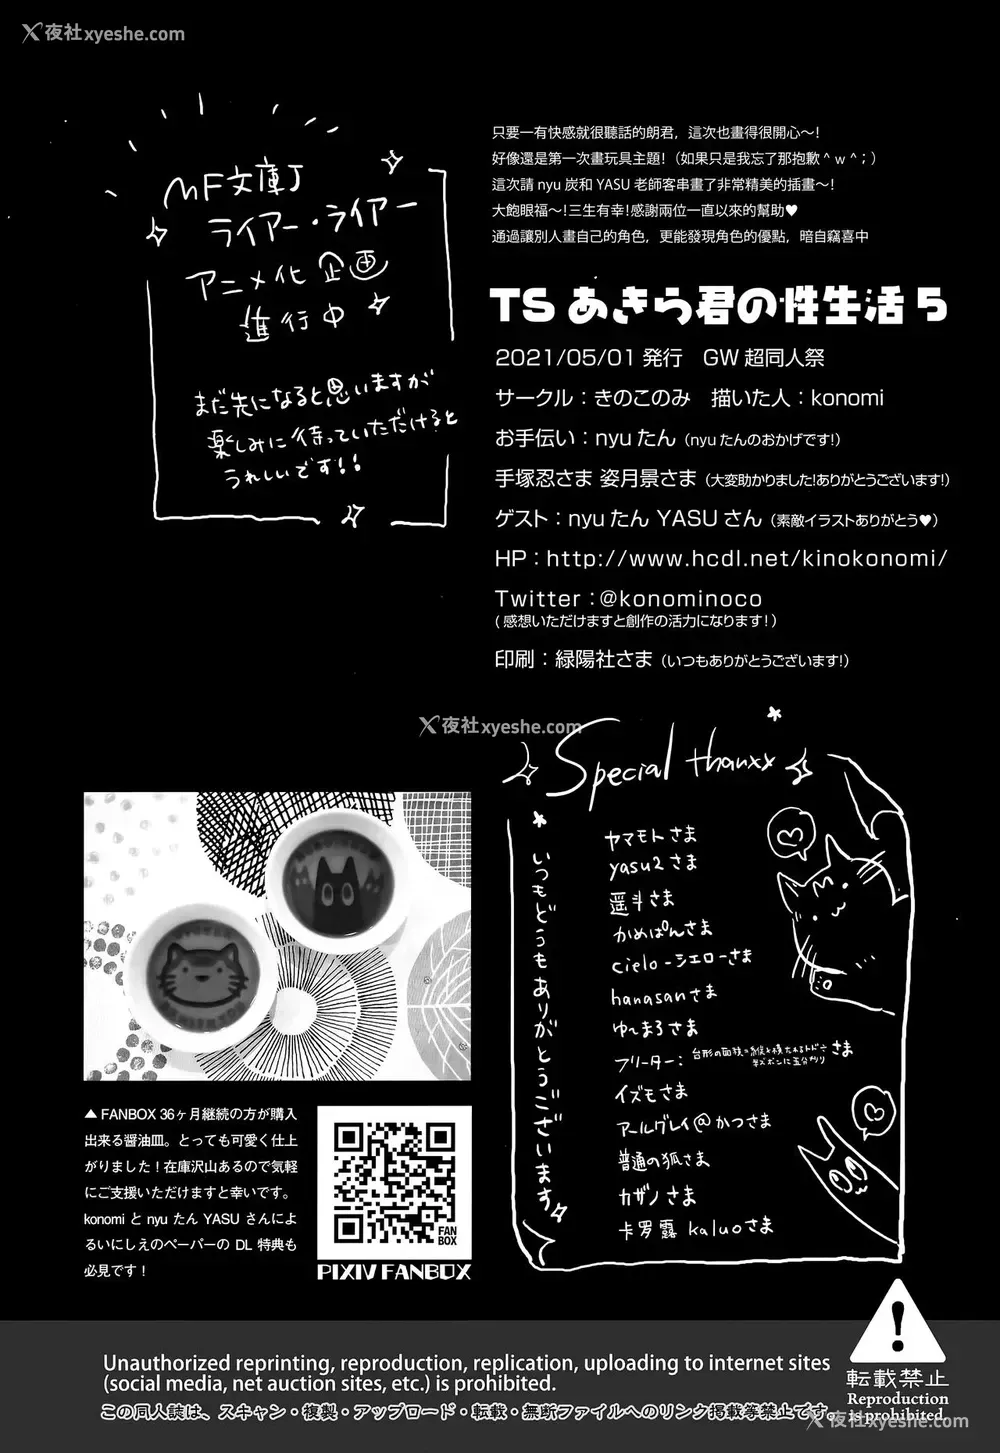 夜社xyeshe.com
MF文庫J
ライアー・ライアー
アニメ化企画
進行中
まだ先になると思いますが
楽しみに待っていただけると
うれしいです!!
只要一有快感就很聽話的朗君，這次也畫得很開心～!
好像還是第一次畫玩具主題!（如果只是我忘了那抱歉＾ｗ＾；）
這次請 nyu 炭和 YASU 老師客串畫了非常精美的插畫～!
大飽眼福～!三生有幸!感謝兩位一直以來的幫助♥
通過讓別人畫自己的角色，更能發現角色的優點，暗自竊喜中
TSあきら君の性生活5
2021/05/01発行　GW超同人祭
サークル：きのこのみ　描いた人：konomi
お手伝い：nyuたん（nyuたんのおかげです!）
手塚忍さま 姿月景さま（大変助かりました!ありがとうございます!）
ゲスト：nyuたん YASUさん（素敵イラストありがとう♥）
HP：http://www.hcdl.net/kinokonomi/
Twitter：@konominoco
(感想いただけますと創作の活力になります!)
印刷：緑陽社さま（いつもありがとうございます!）
夜社xyeshe.com
Special thanxx
いつもどうもありがとうございます
ヤマモトさま
yasu2さま
遥斗さま
かめぱんさま
cielo-シエローさま
hanasanさま
ゆ〜まろさま
フリーター：台形の面積=さま
イズモさま
アールグレイ@かつさま
普通の狐さま
カザノさま
卡罗露 kaluoさま
▲FANBOX 36ヶ月継続の方が購入
出来る醤油皿。とっても可愛く仕上
がりました！在庫沢山あるので気軽
にご支援いただけますと幸いです。
konomi と nyu たん YASU さんによ
るいにしえのペーパーの DL 特典も
必見です！
FAN
BOX
PIXIV FANBOX
Unauthorized reprinting, reproduction, replication, uploading to internet sites
(social media, net auction sites, etc.) is prohibited.
この同人誌は、スキャン・複製・アップロード・転載・無断ファイルへのリンク掲載等禁止です。
転載禁止
Reproduction
is prohibited.
夜社xyeshe.com